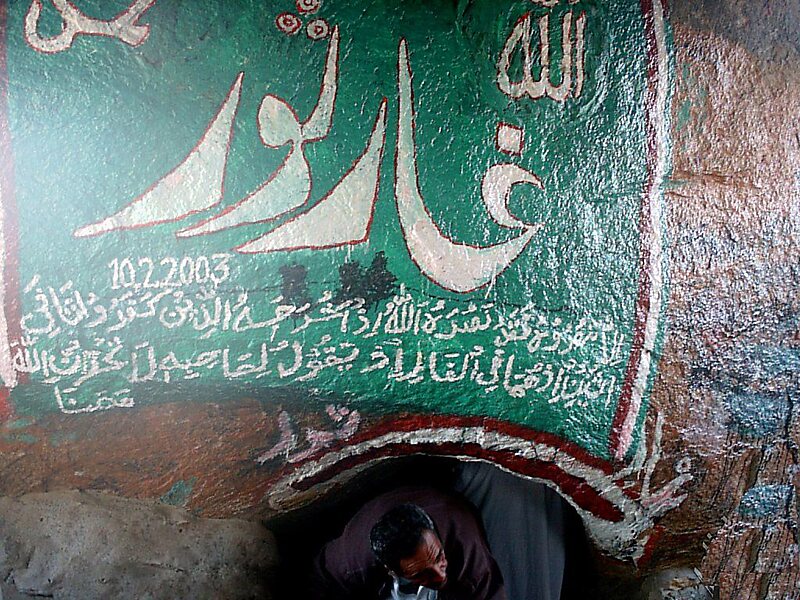 الله
محمد
غار ثور
10.2.2003
إلا تنصروه فقد نصره الله إذ أخرجه الذين كفروا ثاني
اثنين إذ هما في الغار إذ يقول لصاحبه لا تحزن إن الله
معنا